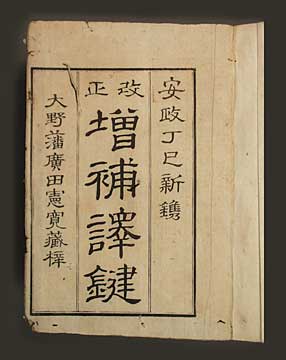 安政丁巳新鐫
改正
增補譯鍵
大野藩廣田憲寬藏梓